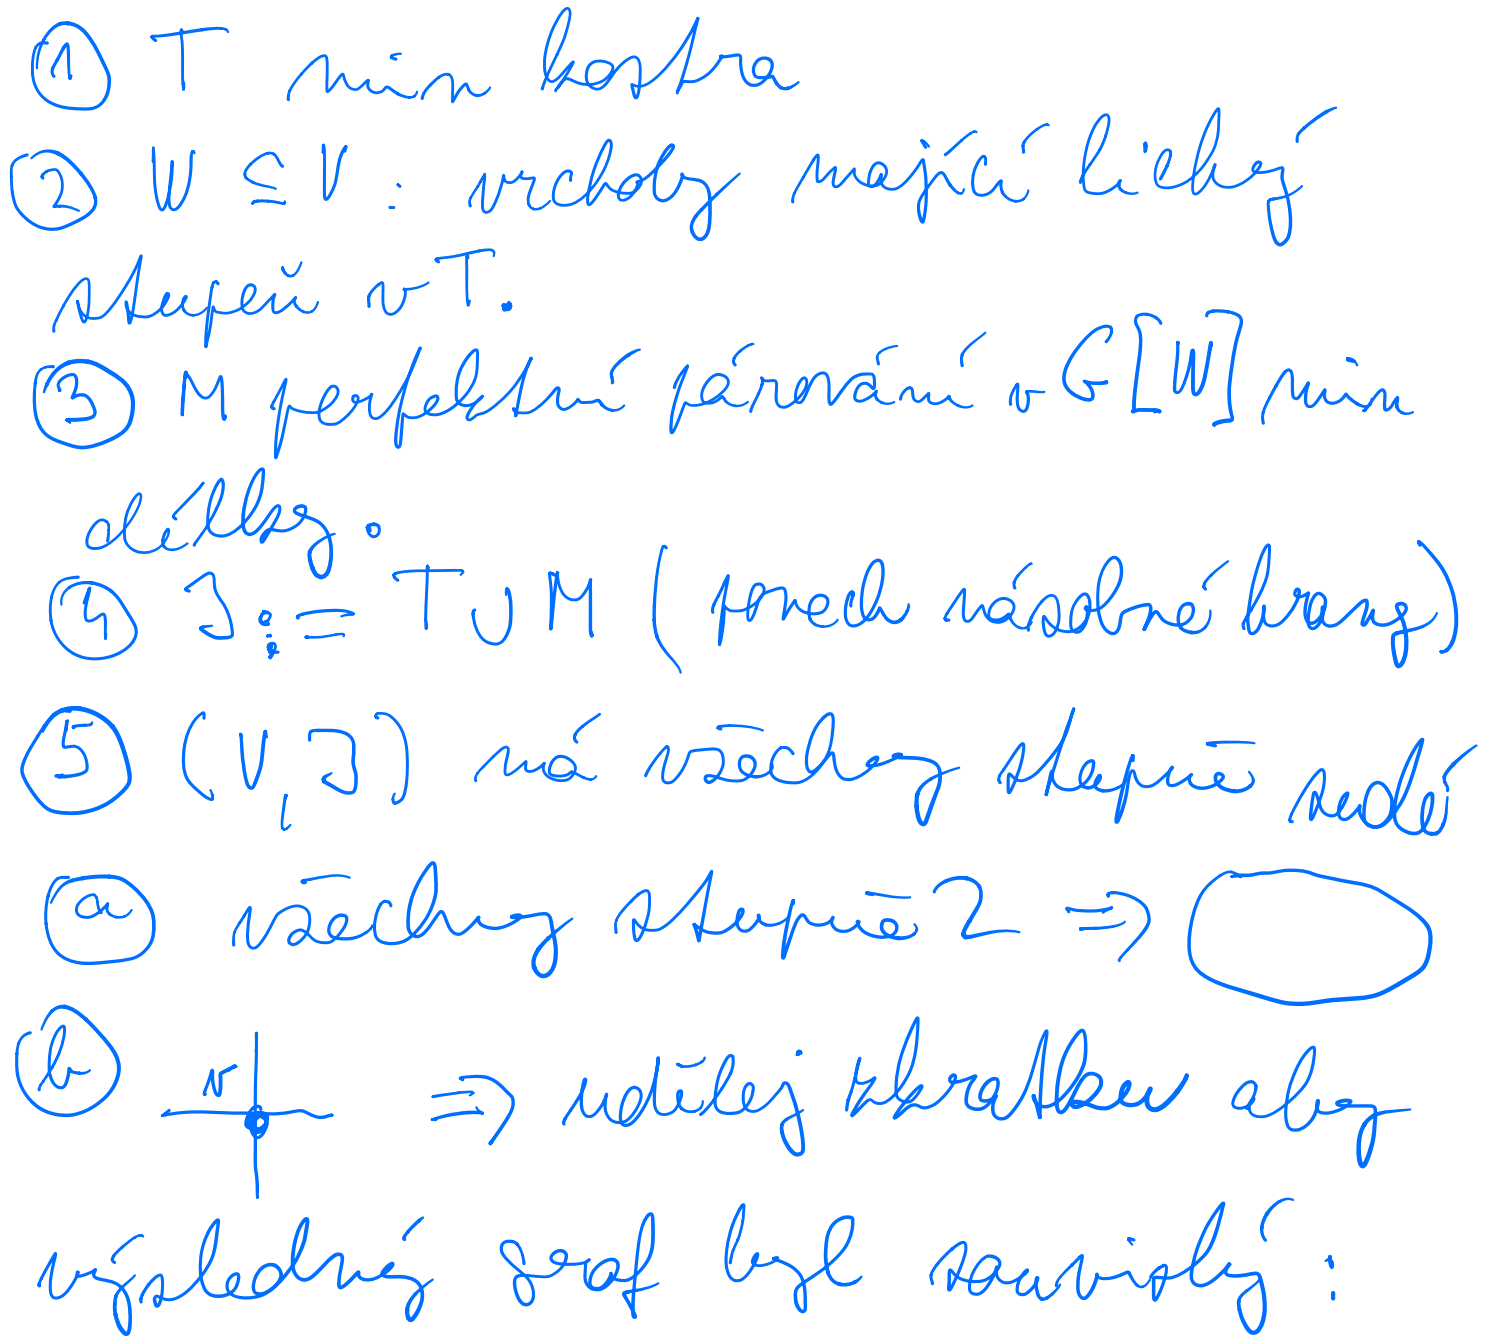 ① T min kostra
② W ⊆ V : vrcholy mající lichý
stupeň v T.
③ M perfektní párování v G[W] min
délky.
④ J := T ∪ M (ponech násobné hrany)
⑤ (V, J) má všechny stupně sudé
ⓐ všechny stupně 2 ⇒
ⓑ v ⇒ udělej zkratku aby
výsledný graf byl souvislý :